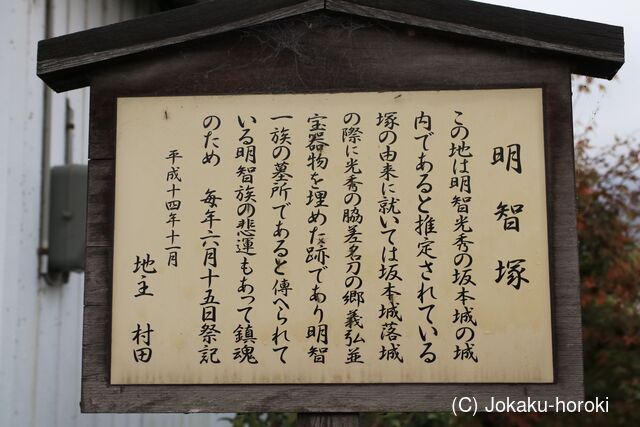 明智塚
この地は明智光秀の坂本城の城
内であると推定されている
塚の由来に就いては坂本城落城
の際に光秀の脇差名刀の郷義弘並
宝器物を埋めた跡であり明智
一族の墓所であると傳へられて
いる明智族の悲運もあって鎮魂
のため 毎年六月十五日祭祀
平成十四年十一月
地主 村田
(C) Jokaku-horoki